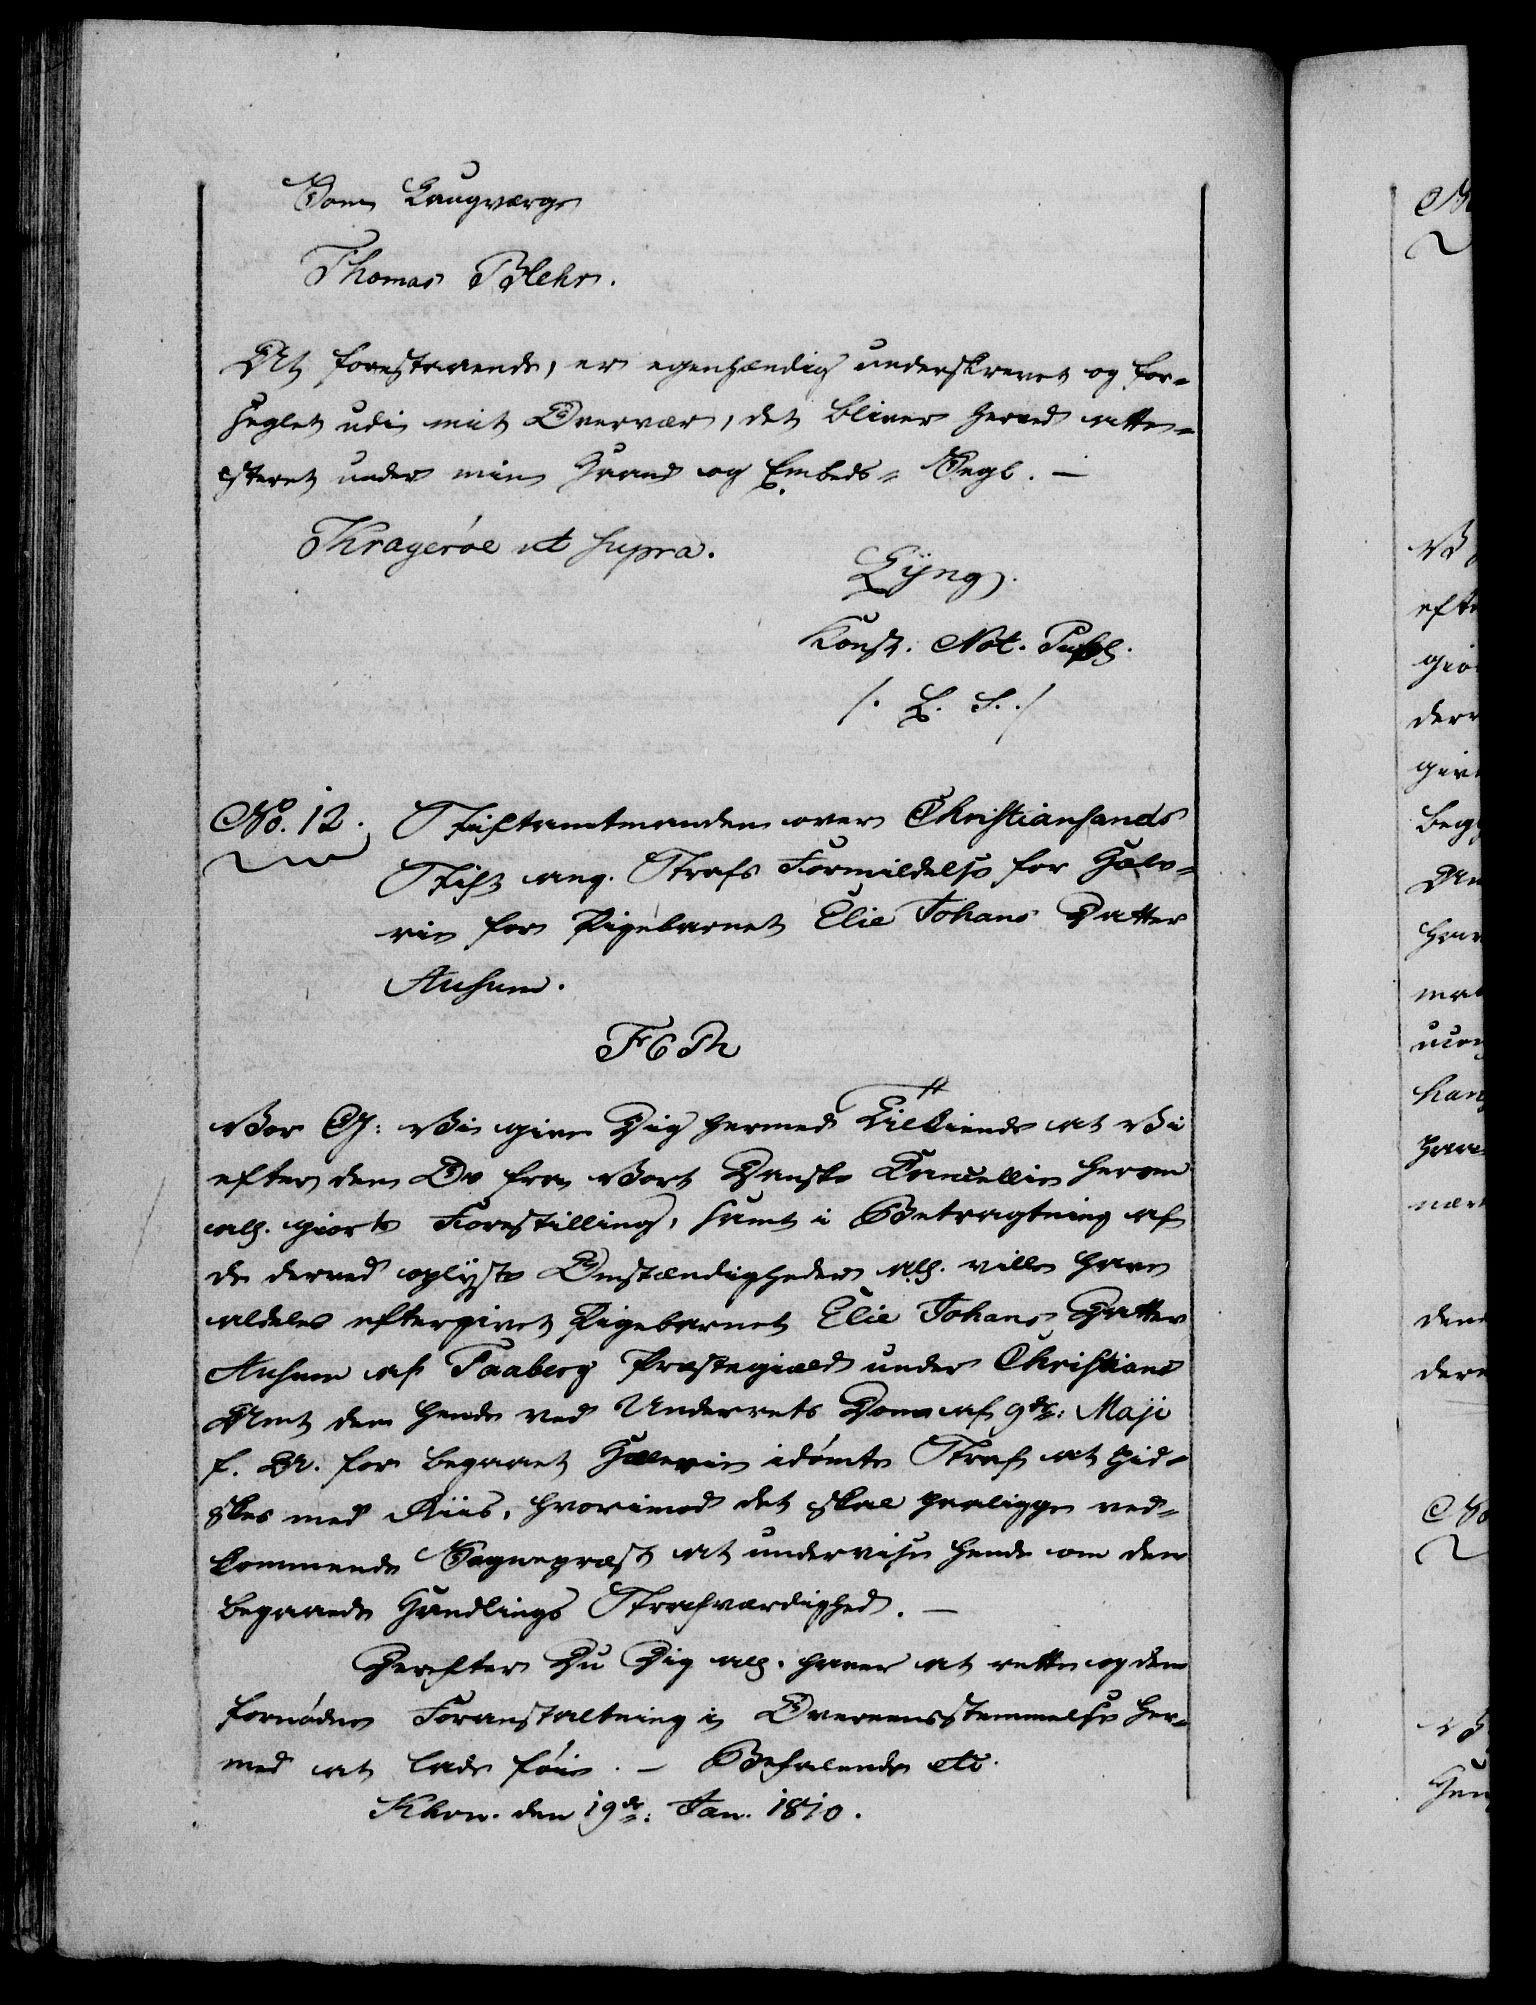 Som Laugværge
Thomas Blehr.
At forestaaende, er egenhændig underskrevet og for-
seglet udi mit Overvær, det bliver herved atte-
steret under min Haand og Embeds- Segl. —
Kragerøe ut supra.
Lyng.
Const. Not. Publ.
/. L. S. ./
No. 12. Stiftamtmanden over Christiansands
Stift ang. Strafs Formildelse for Hæle-
rie for Pigebarnet Elie Johans Datter
Aulum.
F 6 Th
Vor G: Vi give Dig hermed Tilkiende at Vi
efter den Os fra Vort Danske Cancellie herom
all. giorte Forestilling, samt i Betragtning af
de derved oplyste Omstændigheder all. ville have
aldeles eftergivet Pigebarnet Elie Johans Datter
Aulum af Faaberg Præstegield under Christians
Amt den hende ved Underrets Dom af 9de: Maji
f. A. for begaaet Hælerie idømte Straf at hid-
skes med Riis, hvorimod det skal paaligge ved-
kommende Sognepræst at undervise hende om den
begaaede Handlings Strafværdighed. —
Herefter Du Dig all. haver at rette og den
fornødne Foranstaltning i Overeensstemmelse her-
med at lade føie. — Befalende etc.
Khvn. den 19de: Jan. 1810.